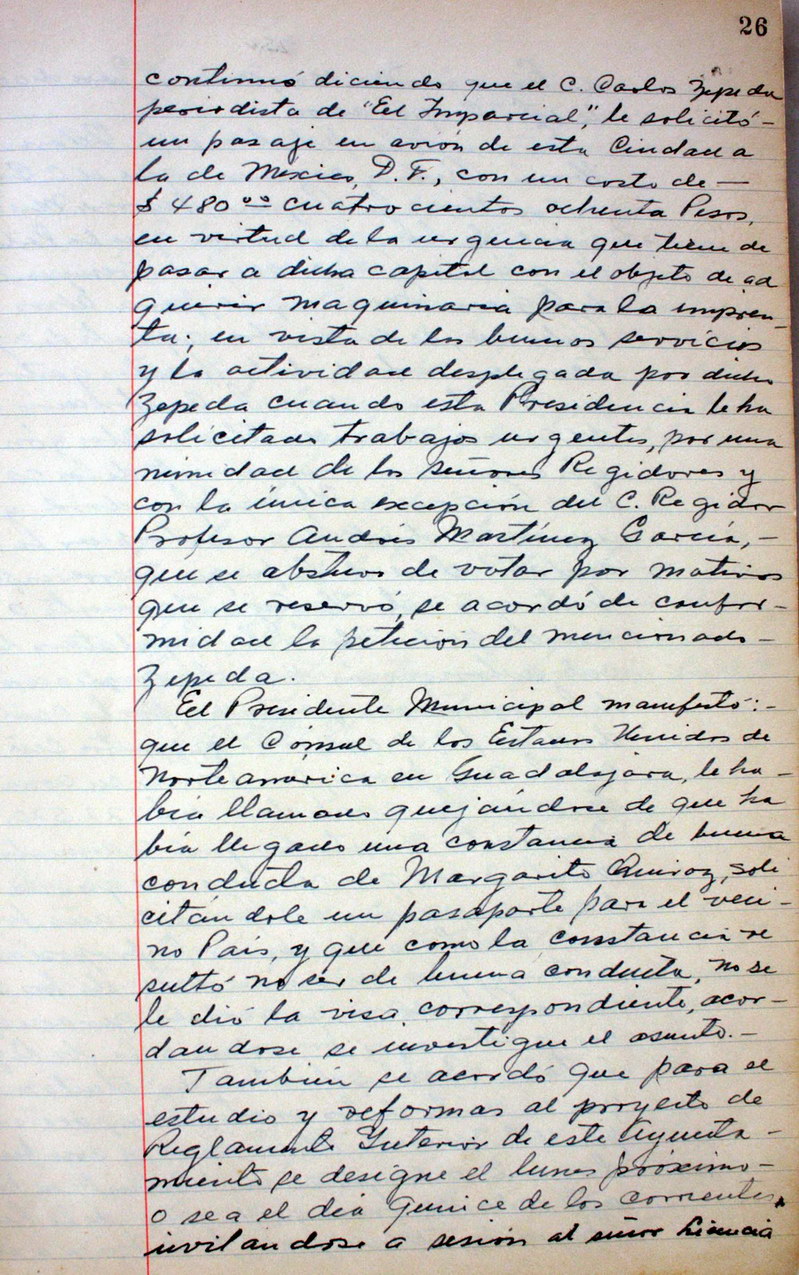 26
continuó diciendo que el C. Carlos Zepeda
periodista de "El Imparcial", le solicitó-
un pasaje en avión de esta Ciudad a
la de Mexico, D.F., con un costo de-
$480.00 cuatrocientos ochenta Pesos,
en virtud de la urgencia que tiene de
pasar a dicha capital con el objeto de ad
quirir maquinaria para la impren-
ta; en vista de los buenos servicios
y la actividad desplegada por dicho
Zepeda cuando esta Presidencia le ha
solicitado trabajos urgentes, por una
nimidad de los señores Regidores y
con la única excepción del C. Regidor
Profesor Andrés Martínez García,-
que se abstuvo de votar por motivos
que se reservó, se acordó de confor-
midad la petición del mencionado-
Zepeda.
El Presidente Municipal manifestó:-
que el Cónsul de los Estados Unidos de
Norteamérica en Guadalajara, le ha-
bía llamado quejándose de que ha
bía llegado una constancia de buena
conducta de Margarito Quiroz, soli
citándole un pasaporte para el veci-
no País, y que como la constancia re
sultó no ser de buena conducta, no se
le dió la visa correspondiente, acor-
dandose se investigue el asunto.-
También se acordó que para el
estudio y reformas al proyecto de
Reglamento Interior de este Ayunta-
miento se designe el lunes próximo-
o sea el día quince de los corrientes,
invitandose a sesión al señor Licencia